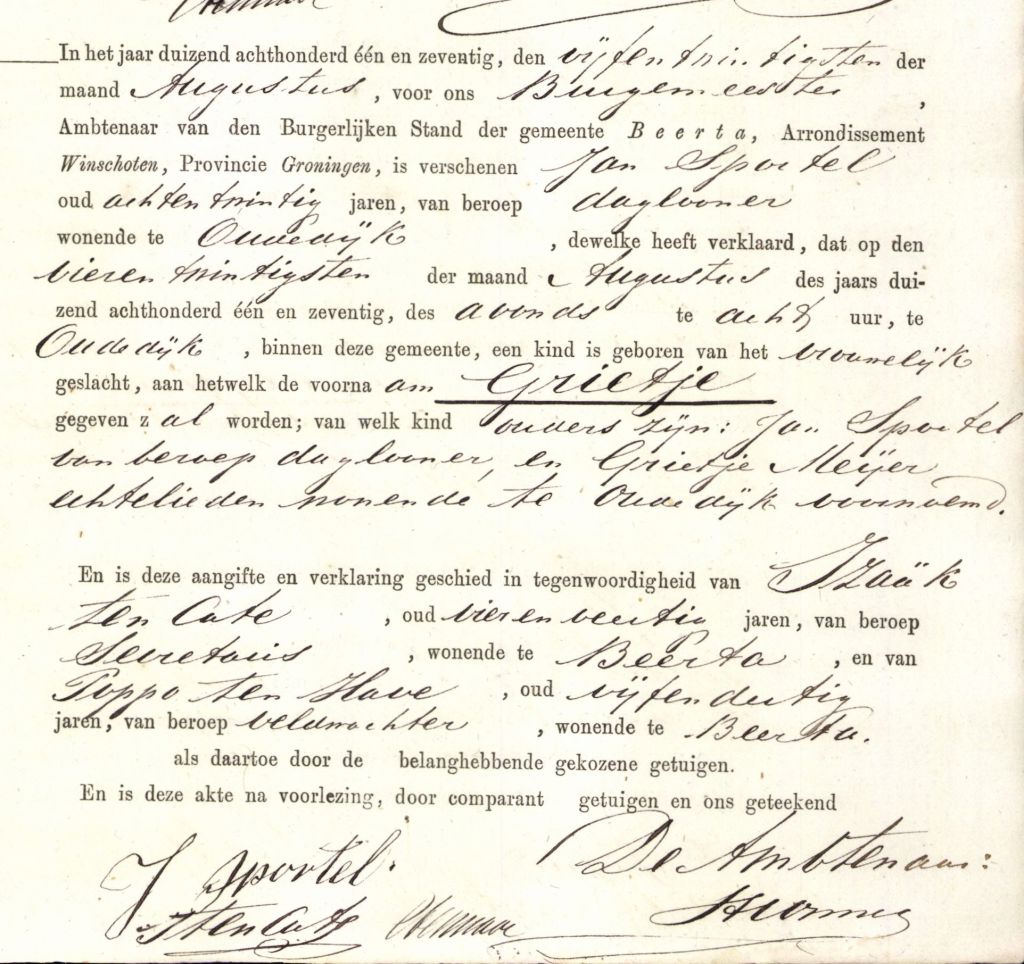 In het jaar duizend achthonderd één en zeventig, den vijfentwintigsten der
maand Augustus, voor ons Burgemeester,
Ambtenaar van den Burgerlijken Stand der gemeente Beerta, Arrondissement
Winschoten, Provincie Groningen, is verschenen Jan Sportel
oud achtentwintig jaren, van beroep daglooner
wonende te Oudedijk, dewelke heeft verklaard, dat op den
vierentwintigsten der maand Augustus des jaars dui-
zend achthonderd één en zeventig, des avonds te acht uur, te
Oudedijk, binnen deze gemeente, een kind is geboren van het vrouwelijk
geslacht, aan hetwelk de voorna am Grietje
gegeven z al worden; van welk kind ouders zijn: Jan Sportel
van beroep daglooner, en Grietje Meijer
echtelieden wonende te Oudedijk voornoemd.
En is deze aangifte en verklaring geschied in tegenwoordigheid van Izaäk
ten Cate, oud vierenveertig jaren, van beroep
Secretaris, wonende te Beerta, en van
Poppo ten Have, oud vijfendertig
jaren, van beroep veldwachter, wonende te Beerta.
als daartoe door de belanghebbende gekozene getuigen.
En is deze akte na voorlezing, door comparant getuigen en ons geteekend
J Sportel. De Ambtenaar:
I ten Cate